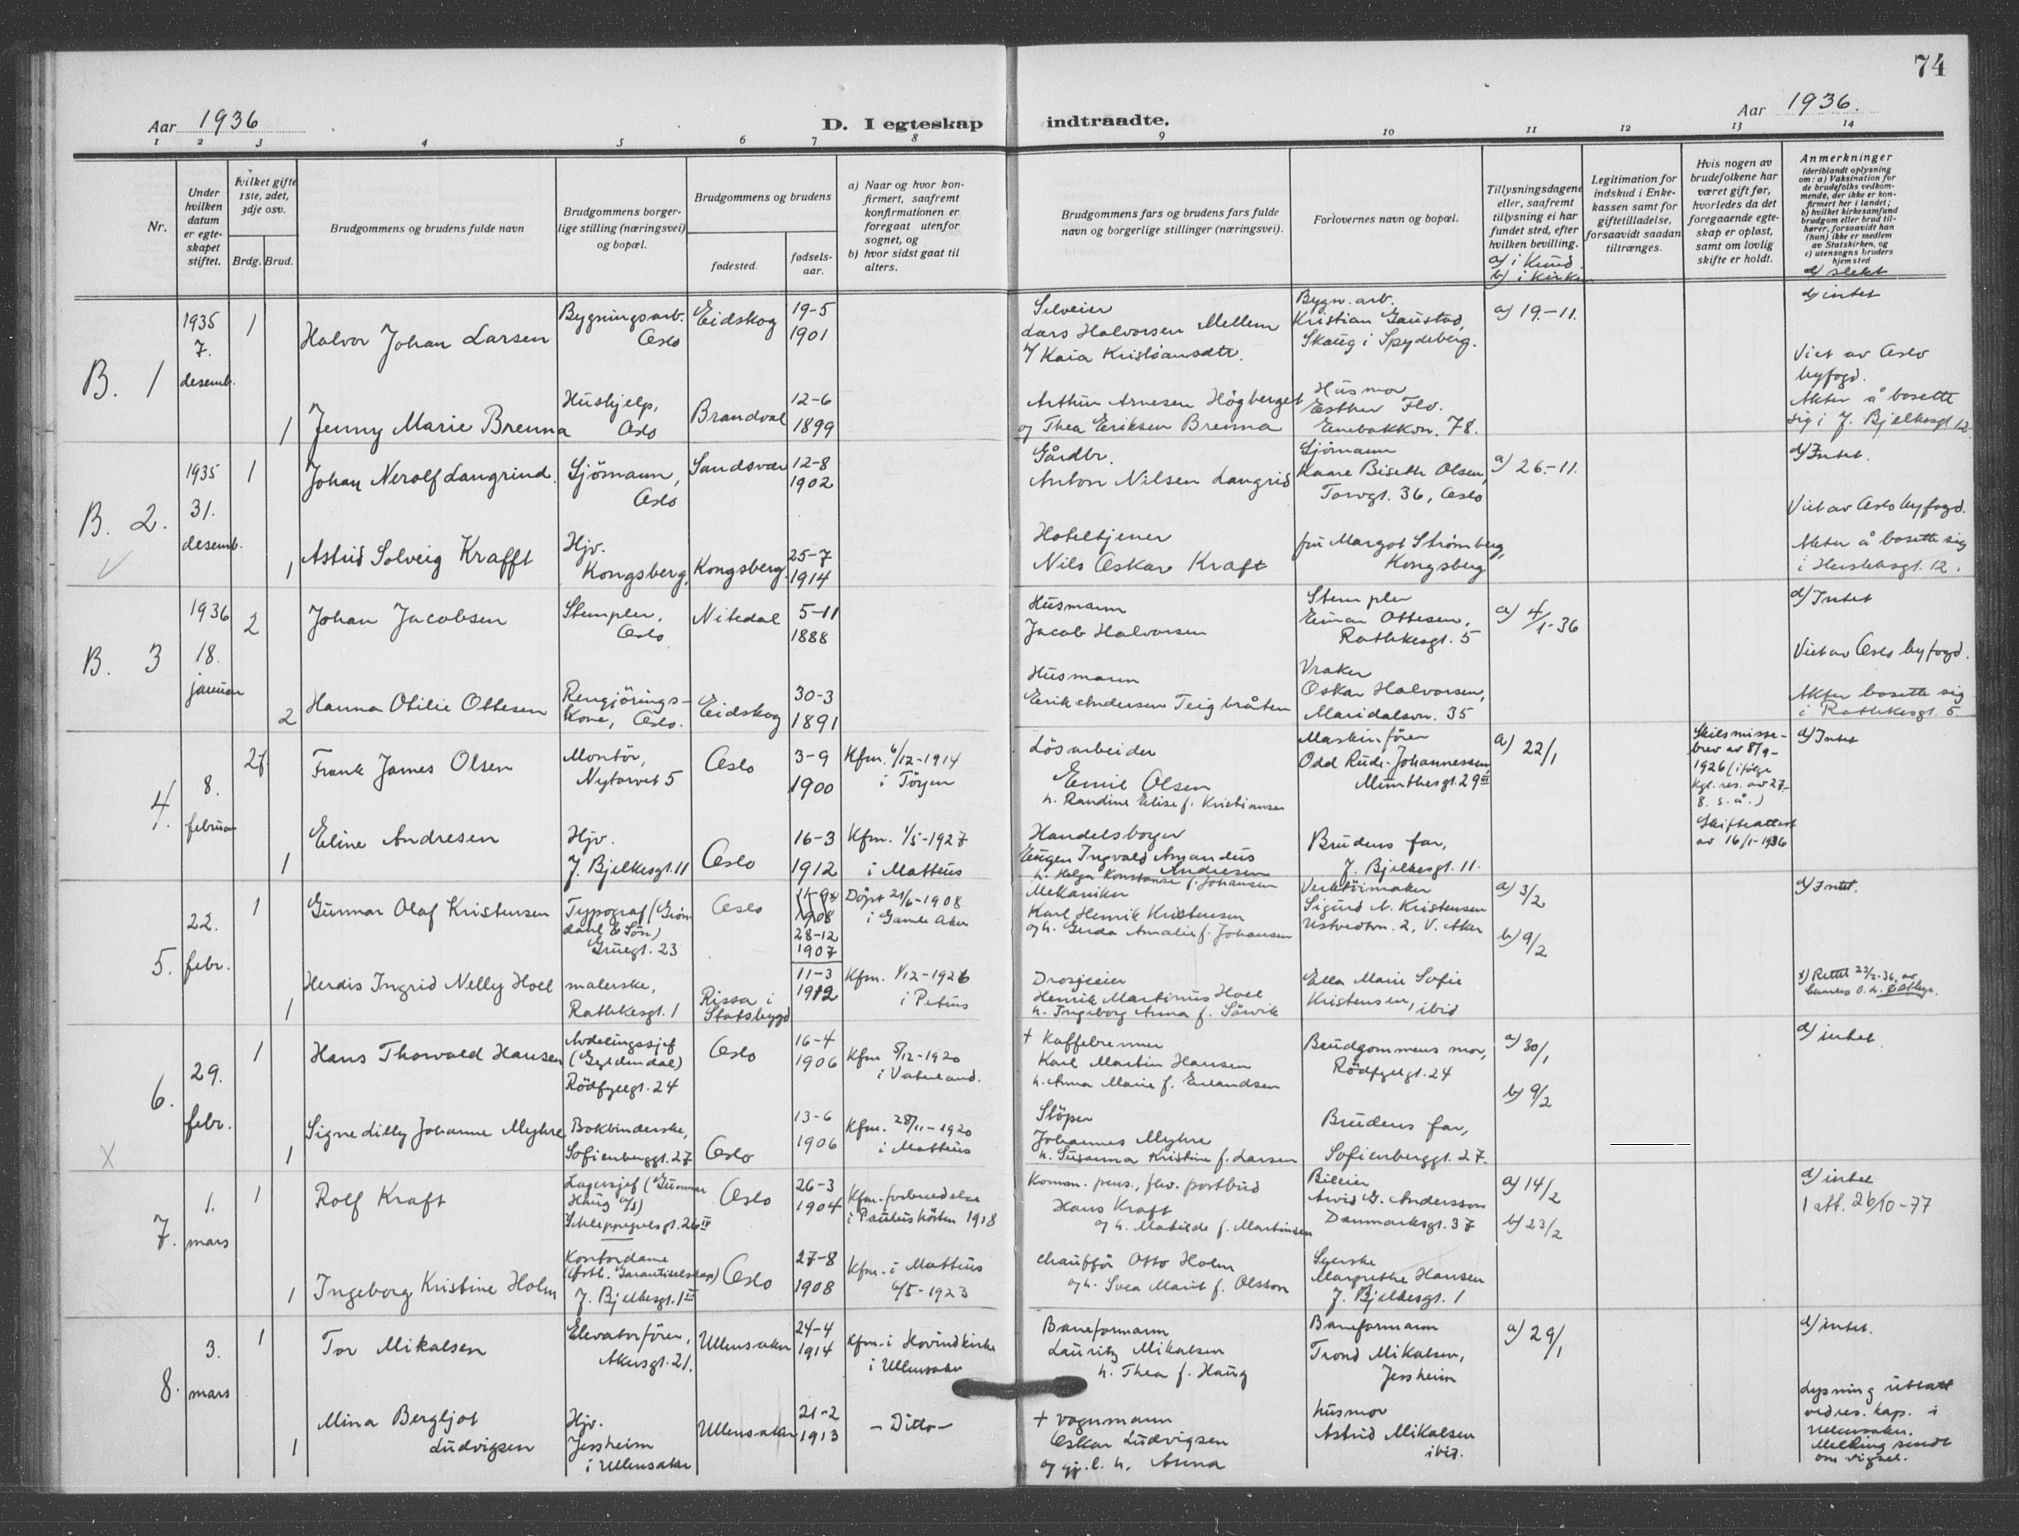 74
Aar 1936
D. I egteskap indtraadte.
Aar 1936.
1 2 3 4 5 6 7 8 9 10 11 12 13 14
Nr.
Under hvilken datum er egteskapet stiftet.
Hvilket gifte 1ste, 2det, 3dje osv.
Brdg. Brud.
Brudgommens og brudens fulde navn
Brudgommens borgerlige stilling (næringsvei) og bopæl.
Brudgommens og brudens
fødested.
fødselsaar.
a) Naar og hvor konfirmert, saafremt konfirmationen er foregaat utenfor sognet, og
b) hvor sidst gaat til alters.
Brudgommens fars og brudens fars fulde navn og borgerlige stillinger (næringsvei).
Forlovernes navn og bopæl.
Tillysningsdagene eller, saafremt tillysning ei har fundet sted, efter hvilken bevilling.
a) i Kind
b) i Kirke
Legitimation for indskud i Enkekassen samt for giftetilladelse, forsaavidt saadan tiltrænges.
Hvis nogen av brudefolkene har været gift før, hvorledes da det foregaaende egteskap er opløst, samt om lovlig skifte er holdt.
Anmerkninger
(deriblandt oplysning om: a) Vaksination for de brudefolks vedkommende, der ikke er konfirmert her i landet;
b) hvilket kirkesamfund brudgom eller brud tilhører, forsaavidt han (hun) ikke er medlem av Statskirken, og
c) utensogns bruders hjemsted
d) slekt
B. 1
1935
7.
desemb.
1
Halvor Johan Larsen
Bygningsarb.
Oslo
Eidskog
19-5
1901
Selveier
Lars Halvorsen Mellem
og Kaia Kristiansdtr.
Bygn. arb.
Kristian Gaustad,
Skaug i Spydeberg.
a) 19.-11.
d) intet
Viet av Oslo
byfogd.
Akter å bosette
sig i J. Bjelkesgt 12
1
Jenny Marie Brenna
Hushjelp,
Oslo
Brandval
12-6
1899
Arthur Arnesen Högberget
og Thea Eriksen Brenna
Husmor
Esther Flo.
Enebakkvn. 78.
B. 2.
1935
31.
desemb.
1
Johan Nerolf Langrind.
Sjömann,
Oslo
Sandsvær
12-8
1902
Gårdbr.
Anton Nilsen Langrid
Sjömann
Kaare Biseth Olsen,
Torvgt. 36, Oslo
a) 26.-11.
d) Intet.
Viet av Oslo byfogd.
Akter å bosette sig
i Herslebsgt. 12.
1
Astrid Solveig Krafft
Hjv.
Kongsberg,
Kongsberg.
25-7
1914
Hoteltjener
Nils Oskar Kraft
fru Margot Strømberg,
Kongsberg
B. 3
1936
18.
januar
2
Johan Jacobsen
Stempler,
Oslo
Nitedal
5-11
1888
Husmann
Jacob Halvorsen
Stempler
Einar Ottesen,
Rathkesgt. 5
a) 4/1-36
d) Intet
Viet av Oslo byfogd.
Akter bosette sig
i Rathkesgt. 5.
2
Hanna Otilie Ottesen
Rengjörings-
kone, Oslo.
Eidskog
30-3
1891
Husmann
Erik Andersen Teigbråten
Vraker
Oskar Halvorsen,
Maridalsvn. 35
4.
8.
februar
2f
Frank James Olsen
Montör,
Nytorvet 5
Oslo
3-9
1900
Kfm. 6/12-1914
i Töyen
Lösarbeider
Emil Olsen
h. Randine Elise f. Kristiansen
Maskinförer
Odd Rude-Johannessen,
Munthesgt. 29 III
a) 22/1
Skilsmisse-
brev av 8/9-
1926 (ifölge
kgl. res. av 27-
8. s. å.)
Skifteattest
av 16/1-1936
d) Intet
1
Eline Andresen
Hjv.
J. Bjelkesgt. 11
Oslo
16-3
1912
Kfm. 1/5-1927
i Matteus
Handelsborger
Eugen Ingvald Amandus
Andresen
h. Helga Konstanse f. Johansen
Brudens far,
J. Bjelkesgt. 11.
5.
22.
febr.
1
Gunnar Olaf Kristensen
Typograf (Grön-
dahl & Sön)
Gruegt. 23
Oslo
1908
28-12
1907
Döpt 21/6-1908
i Gamle Aker
Mekaniker
Karl Henrik Kristensen
og h. Gerda Amalie f. Johansen
Verktöimaker
Sigurd N. Kristensen
Ustvedtvn. 2, V. Aker
a) 3/2
b) 9/2
d) Intet.
1
Herdis Ingrid Nelly Hoel
malerske,
Rathkesgt. 1
Rissa i
Statsbygd
11-3
1912
Kfm. 1/12-1926
i Petrus
Drosjeeier
Henrik Martinus Hoel
h. Ingeborg Anna f. Sörvik
Ella Marie Sofie
Kristensen, ibid
x) Rettet 22/2-36, av
6.
29.
febr.
1
Hans Thorvald Hansen
Avdelingssjef
(Gyldendal)
Rödfyllgt. 24
Oslo
16-4
1906
Kfm 5/12-1920
i Vaterland.
+ Kaffebrenner
Karl Martin Hansen
h. Anna Marie f. Erlandsen
Brudgommens mor,
Rödfyllgt. 24
a) 30/1
b) 9/2
d) intet.
1
Signe Lilly Johanne Myhre
Bokbinderske,
Sofienberggt. 27
Oslo
13-6
1906
Kfm. 28/11-1920
i Matteus
Stöper
Johannes Myhre
h. Susanna Kristine f. Larsen
Brudens far,
Sofienberggt. 27.
7.
1.
mars
1
Rolf Kraft
Lagersjef (Gunnar
Haug A/S)
Schleppegrelsgt. 26 IV
Oslo
26-3
1904
Kfm. forberedelse
i Paulus hösten 1918
Komm. pens., fhv. postbud
Hans Kraft
og h. Matilde f. Martinsen
Bileier
Arvid G. Andersson
Danmarksgt. 37
a) 14/2
b) 23/2
d) intet
1 att. 26/10-77
1
Ingeborg Kristine Holm
Kontordame
J. Bjelkesgt. 1 II
Oslo
27-8
1908
Kfm. i Matteus
6/5-1923
chaufför Otto Holm
og h. Svea Marit f. Olsson
Syerske
Margrethe Hansen
J. Bjelkesgt. 1
8.
3.
mars
1
Tor Mikalsen
Elevatorförer,
Akersgt. 21.
Ullensaker
24-4
1914
Kfm. i Hovindkirke
i Ullensaker
Baneformann
Lauritz Mikalsen
h. Thea f. Haug
Baneformann
Trond Mikalsen,
Jessheim
a) 29/1
d) intet.
Lysning uttatt
ved res. kap. i
Ullensaker.
Melding sendt
om vigsel.
1
Mina Bergljot
Ludvigsen
Hjv.
Jessheim
i Ullensaker
Ullensaker
21-2
1913
- Ditto -
+ vognmann
Oskar Ludvigsen
og gj. l. h. Anna
husmor
Astrid Mikalsen
ibid.